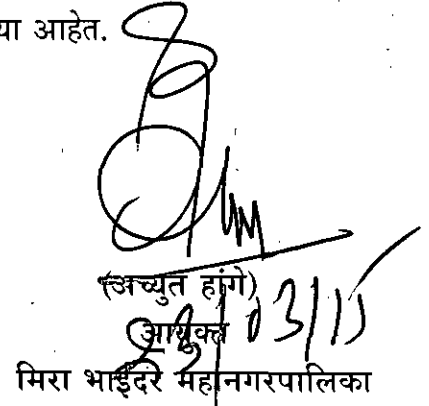 या आहेत.
(अच्युत हांगे)
आयुक्त
/03/15
मिरा भाईंदर महानगरपालिका